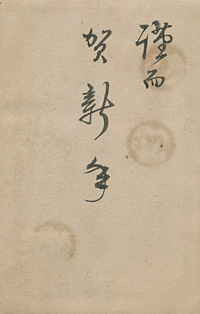 謹而
賀新年